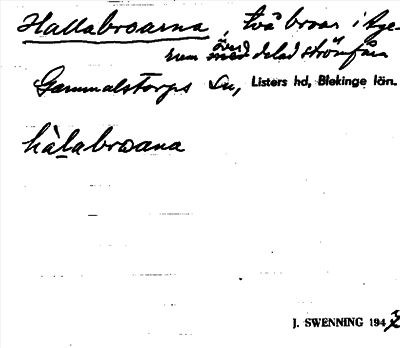 Hallabroarna, två broar i Age-
rum över delad strömfåra
Gammalstorps sn, Listers hd, Blekinge län.
hàlabroana
J. SWENNING 1947